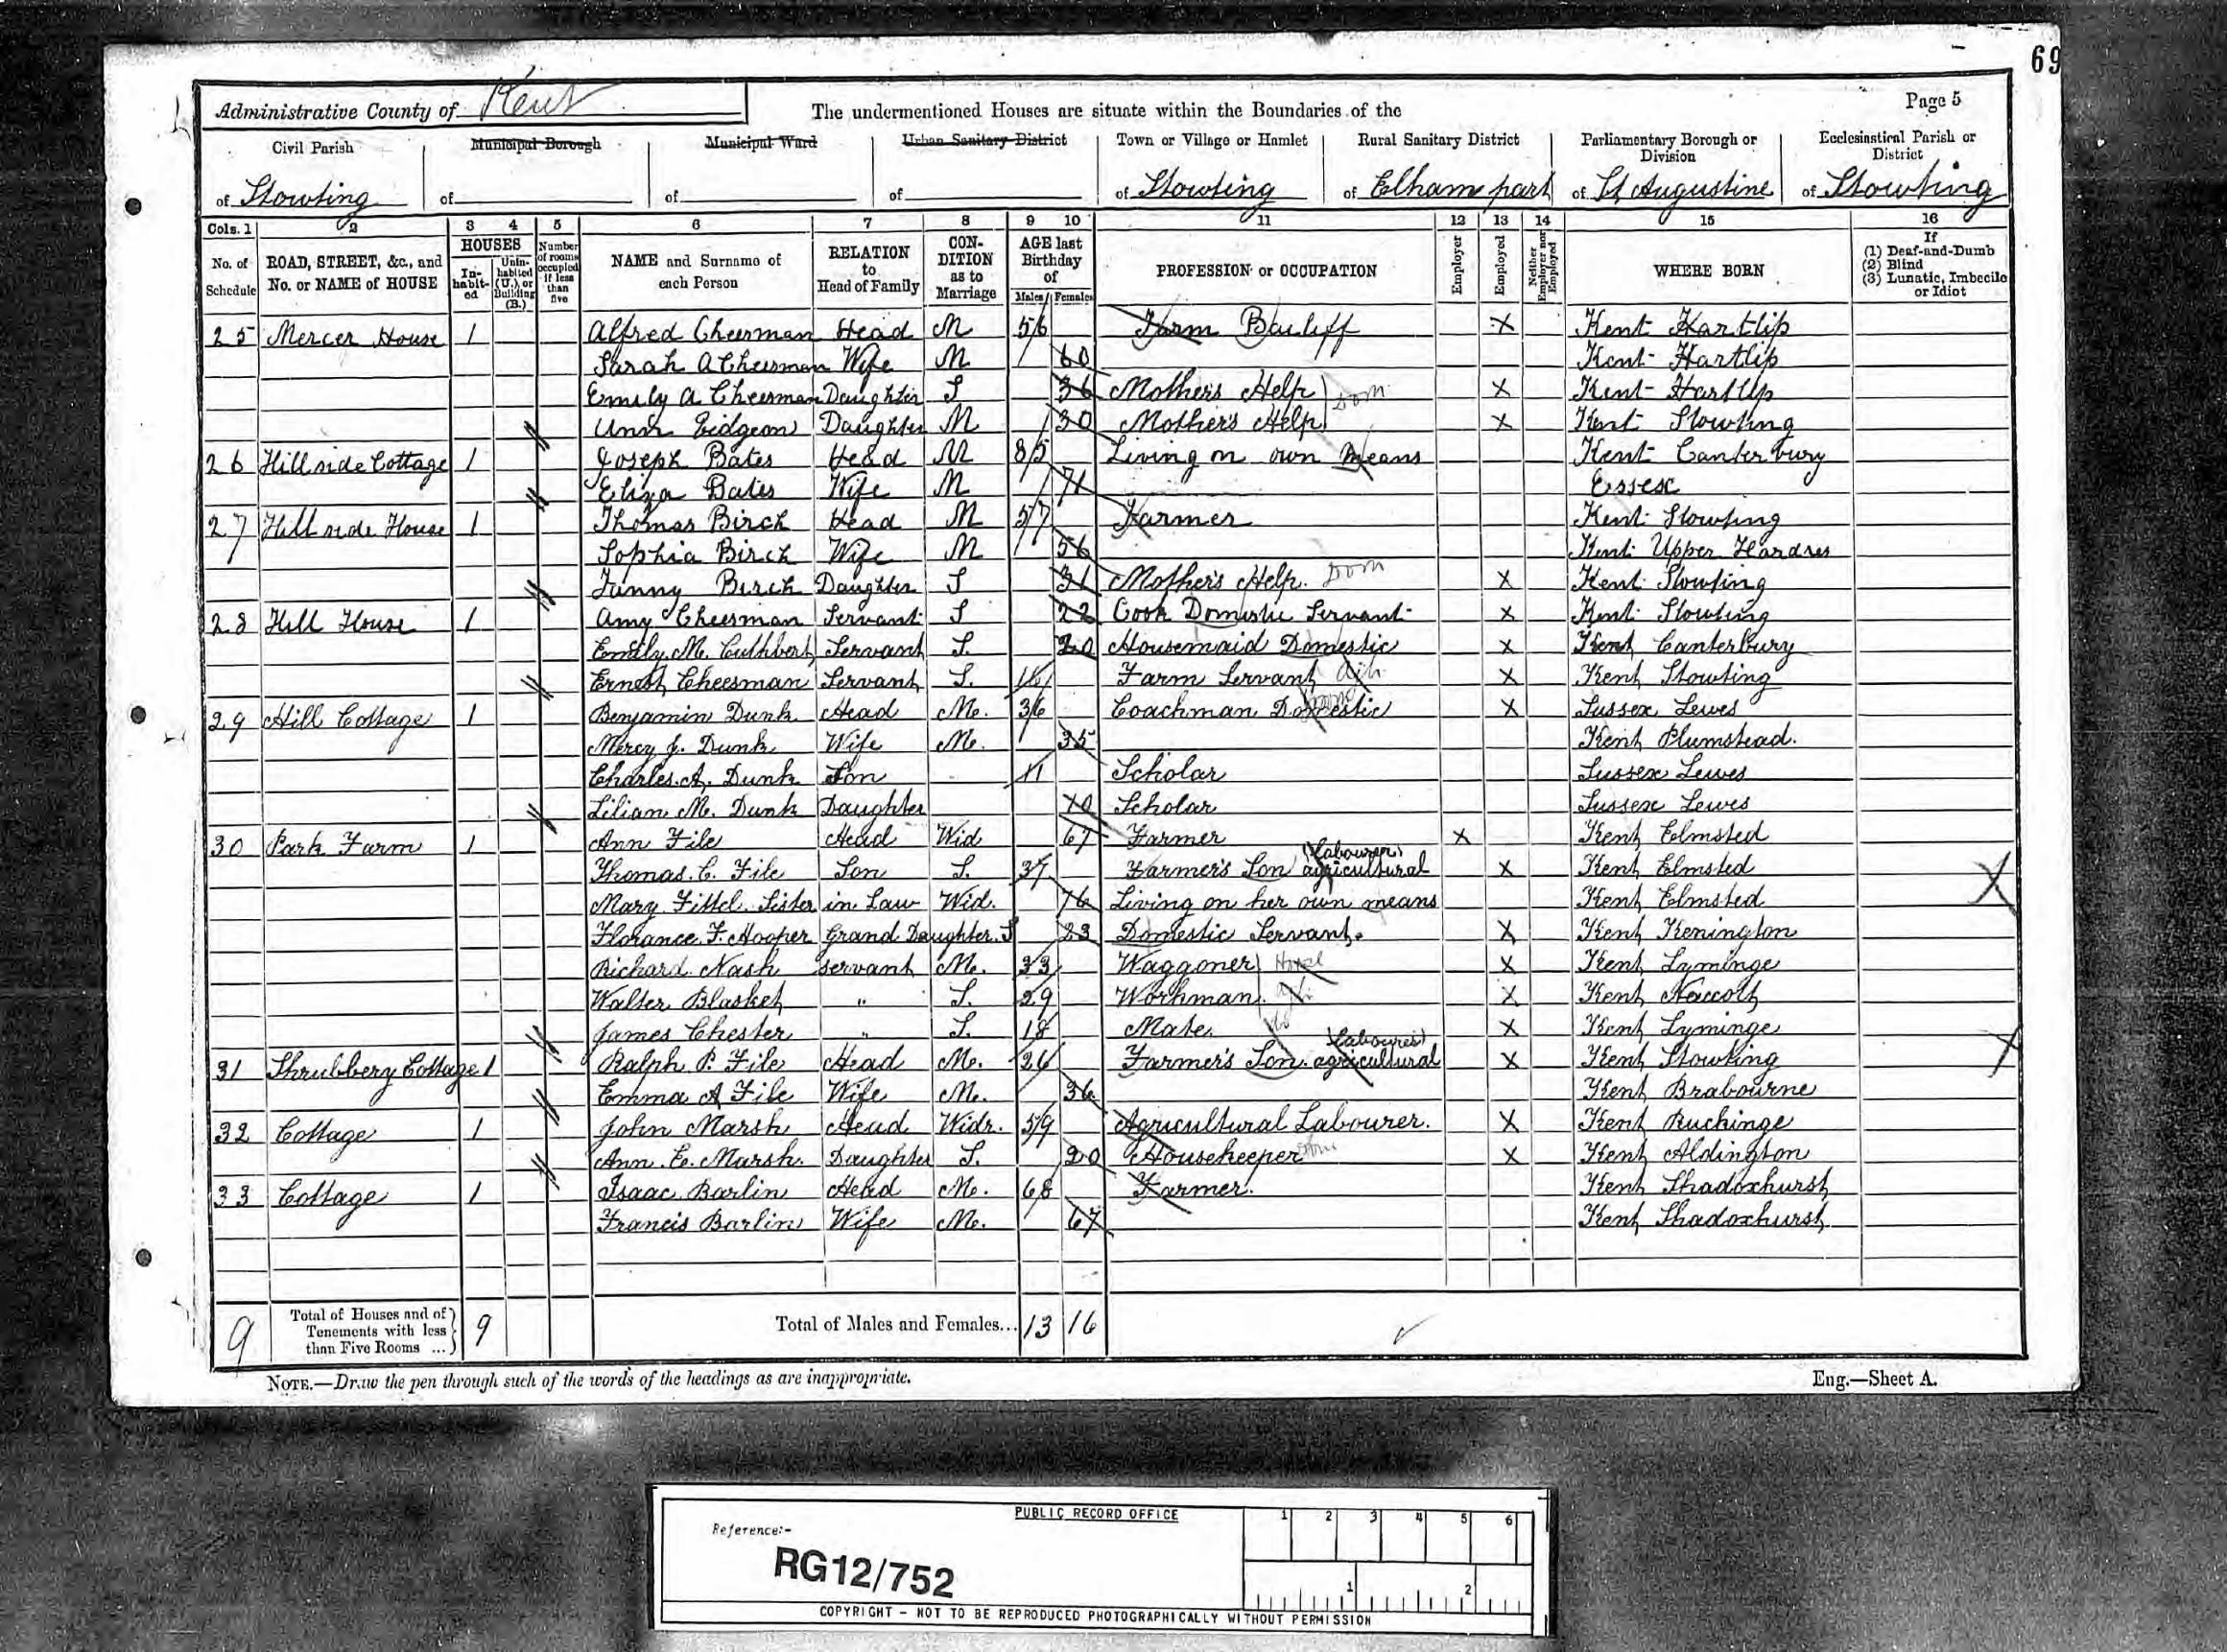 69
Administrative County of Kent The undermentioned Houses are situate within the Boundaries of the Page 5
Civil Parish of Stowting Municipal Borough of Municipal Ward of Urban Sanitary District of Town or Village or Hamlet of Stowting Rural Sanitary District of Elham part Parliamentary Borough or Division of St Augustine Ecclesiastical Parish or District of Stowting
Cols. 1 2 3 4 5 6 7 8 9 10 11 12 13 14 15 16
No. of Schedule ROAD, STREET, &c., and No. or NAME of HOUSE HOUSES Inhabited Uninhabited (U.), or Building (B.) Number of rooms occupied if less than five NAME and Surname of each Person RELATION to Head of Family CONDITION as to Marriage AGE last Birthday of Males Females PROFESSION or OCCUPATION Employer Employed Neither Employer nor Employed WHERE BORN If (1) Deaf-and-Dumb (2) Blind (3) Lunatic, Imbecile or Idiot
25 Mercer House 1 Alfred Cheesman Head M 56 Farm Bailiff X Kent Hartlip
Sarah A Cheesman Wife M 60 Kent Hartlip
Emily A Cheesman Daughter S 36 Mother's Help Dom X Kent Hartlip
Ann Daughter M 30 Mother's Help X Kent Stowting
26 Hillside Cottage 1 Joseph Bates Head M 85 Living on own Means Kent Canterbury
Eliza Bates Wife M 71 Essex
27 Hillside House 1 Thomas Birch Head M 57 Farmer Kent Stowting
Sophia Birch Wife M 56 Kent Upper Hardres
Fanny Birch Daughter S 31 Mother's Help. Dom X Kent Stowting
28 Hill House 1 Amy Cheesman Servant S 22 Cook Domestic Servant X Kent Stowting
Emily M. Cuthbert Servant S. 20 Housemaid Domestic X Kent Canterbury
Ernest Cheesman Servant S. 16 Farm Servant X Kent Stowting
29 Hill Cottage 1 Benjamin Dunk Head M. 36 Coachman Domestic X Sussex Lewes
Mercy J. Dunk Wife M. 35 Kent Plumstead.
Charles A. Dunk Son 11 Scholar Sussex Lewes
Lilian M. Dunk Daughter 10 Scholar Sussex Lewes
30 Park Farm 1 Ann File Head Wid 67 Farmer X Kent Elmsted
Thomas. C. File Son S. 37 Farmer's Son agricultural (labourer) X Kent Elmsted
Mary Sister in Law Wid. 76 Living on her own means Kent Elmsted
Florance F. Hooper Grand Daughter. S 23 Domestic Servant. X Kent Kenington
Richard Nash servant M. 33 Waggoner X Kent Lyminge
Walter Blasket " S. 29 Workman X Kent
James Chester " S. 18 Mate. X Kent Lyminge
31 Shrubbery Cottage 1 Ralph P. File Head M. 26 Farmer's Son. agricultural (labourer) X Kent Stowting
Emma A File Wife M. 36 Kent Brabourne
32 Cottage 1 John Marsh Head Widr. 59 Agricultural Labourer. X Kent Ruchinge
Ann. E. Marsh. Daughter S. 20 Housekeeper X Kent Aldington
33 Cottage 1 Isaac Barlin Head M. 68 Farmer. Kent Shadoxhurst
Francis Barlin Wife M. 67 Kent Shadoxhurst
9 Total of Houses and of Tenements with less than Five Rooms ... 9 Total of Males and Females... 13 16
NOTE.—Draw the pen through such of the words of the headings as are inappropriate. Eng.—Sheet A.
PUBLIC RECORD OFFICE 1 2 3 4 5 6
Reference:-
RG12/752 1 2
COPYRIGHT - NOT TO BE REPRODUCED PHOTOGRAPHICALLY WITHOUT PERMISSION